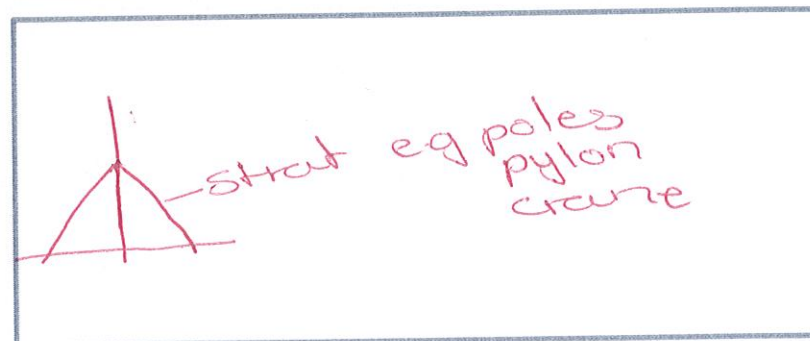 strut eg poles
pylon
crane